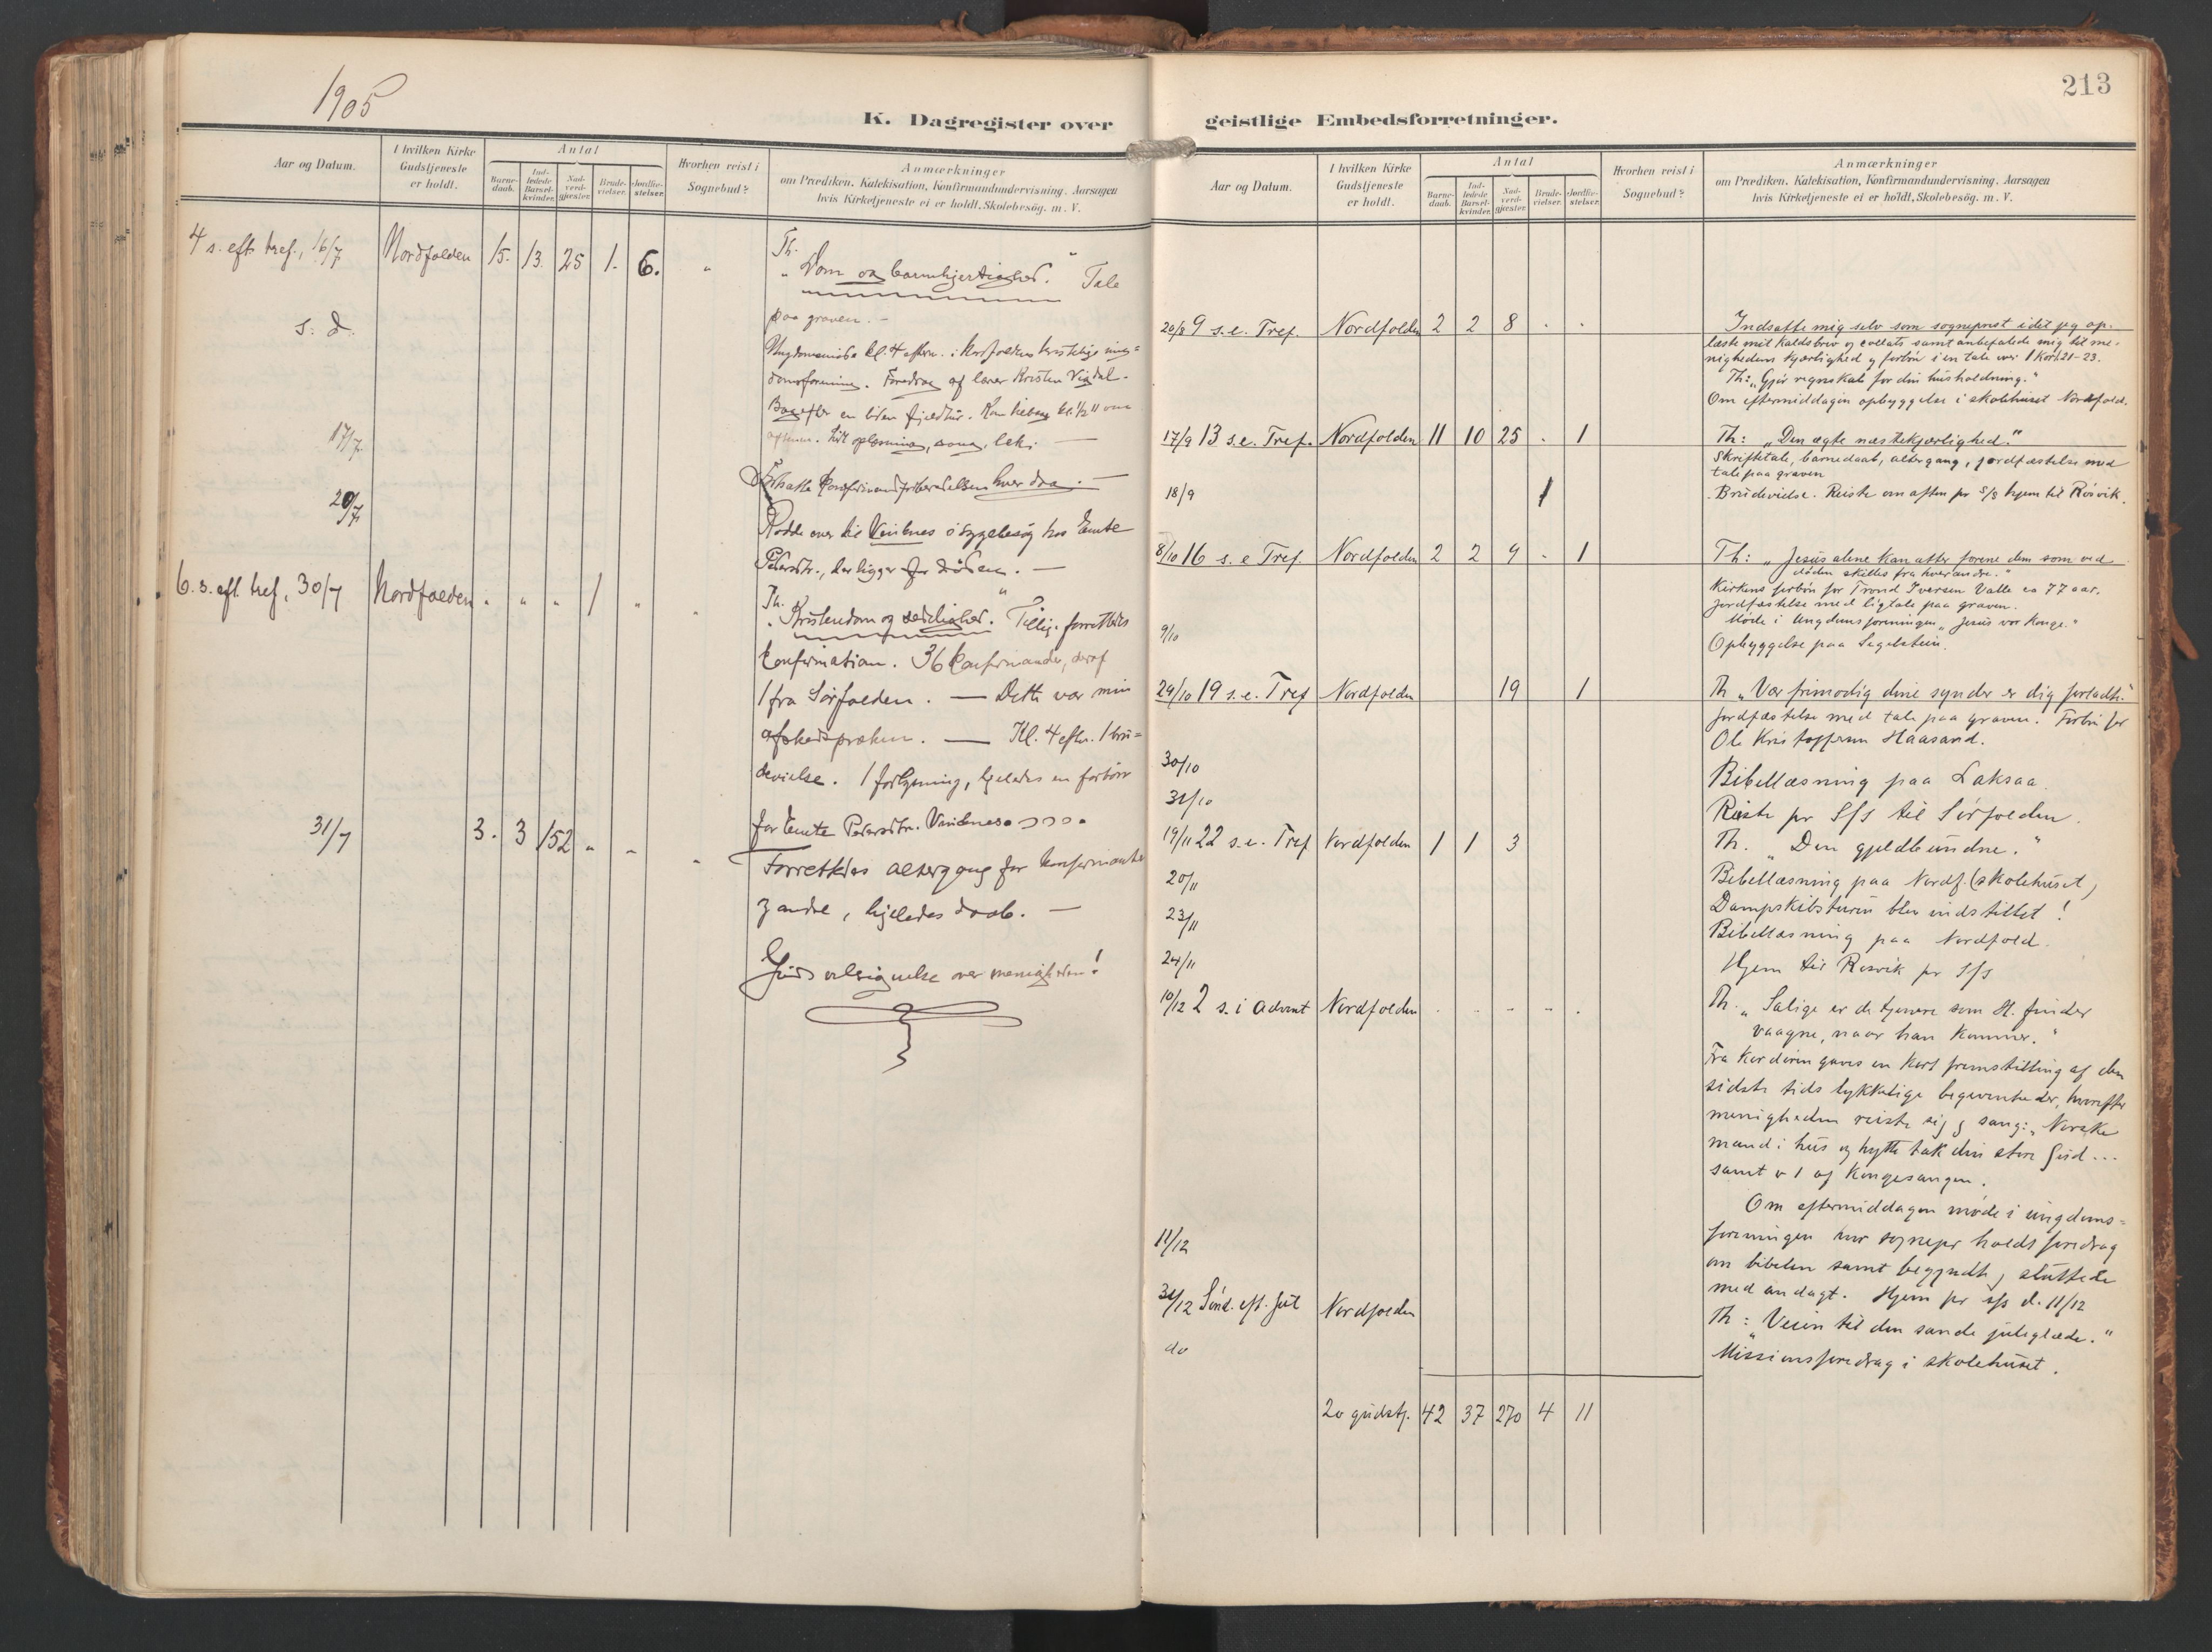 1905
K. Dagregister over
Aar og Datum.
I hvilken Kirke Gudstjeneste er holdt.
Antal
Barnedaab.
Indledede Barselkvinder.
Nadverdgjester.
Brudevielser.
Jordfæstelser.
Hvorhen reist i Sognebud?
Anmærkninger
om Prædiken, Katekisation, Konfirmandundervisning, Aarsagen
hvis Kirketjeneste ei er holdt, Skolebesög. m. V.
4 s. eft. tref., 16/7 Nordfolden 15. 13. 25 1. 6. "
Th.
"Dom og barmhjertighed." Tale
s. d.
paa graven. -
Ungdomsmöde kl. 4 eftm. i Nordfoldens kristelige ung=
domsforening. Foredrag af lærer Kristen Vigdal.
Bagefter en liden fjeldtur. Kom kl. 1/2 11 om
aftenen. oplæsning, sang, lek. —
17/7
Fortsatte konfirmandforberedelsen hver dag. —
20/7
Rodde over til Vinknes i sygebesøg hos Ente
Pedersdtr., der ligger for döden. —
6. s. eft. tref, 30/7 Nordfolden " " " 1 " "
Th.
"Kristendom og sædelighed." Tillige forrettedes
konfirmation. 36 konfirmander, deraf
1 fra Sörfolden. — Dette var min
afskedspræken. — Kl. 4 eftm. 1 bru=
devielse. 1 forlysning, ligeledes en forbön
for Ente Pedersdtr. Vinknes
31/7 3. 3 152 " " "
Forrettedes altergang for konfirmanter
og andre, ligeledes daab. —
Guds velsignelse over menigheden!
213
geistlige Embedsforretninger.
Aar og Datum.
I hvilken Kirke Gudstjeneste er holdt.
Antal
Barnedaab.
Indledede Barselkvinder.
Nadverdgjester.
Brudevielser.
Jordfæstelser.
Hvorhen reist i Sognebud?
Anmærkninger
om Prædiken, Katekisation, Konfirmandundervisning, Aarsagen
hvis Kirketjeneste ei er holdt, Skolebesög. m. V.
20/8 9 s. e. Tref. Nordfolden 2 2 8 . .
Indsatte mig selv som sogneprest idet jeg op-
læste mit kaldsbrev og collats samt anbefalede mig til me-
nighedens kjærlighed og forbön i en tale over 1 Kor 1.21-23.
Th: "Gjör regnskab for din husholdning."
Om eftermiddagen opbyggelse i skolehuset Nordfold.
17/9 13 s. e. Tref. Nordfolden 11 10 25 . 1
Th: "Den ægte næstekjærlighed."
Skriftetale, barnedaab, altergang, jordfæstelse med
tale paa graven
18/9 1
Brudevielse. Reiste om aften pr S/S hjem til Rösvik.
8/10 16 s. e Tref. Nordfolden 2 2 9 - 1
Th: "Jesus alene kan atter forene dem som ved
döden skilles fra hverandre."
Kirkens forbön for Trond Iversen Valle ca 77 aar.
Jordfæstelse med ligtale paa graven.
Möde i Ungdomsforeningen "Jesus vor Konge."
9/10
Opbyggelse paa Segelstein.
29/10 19 s. e. Tref Nordfolden 19 1
Th "Vær frimodig dine synder er dig forladte."
Jordfæstelse med tale paa graven. Forbön for
Ole Kristoffersen Haasand.
30/10
Bibellæsning paa Laksaa.
31/10
Reiste pr S/S til Sörfolden.
19/11 22 s. e. Tref Nordfolden 1 1 3
Th. "Den gjeldbundne."
20/11
Bibellæsning paa Nordf. (skolehuset)
Dampskibsturen blev indstillet!
23/11
Bibellæsning paa Nordfold.
24/11
Hjem til Rösvik pr S/S
10/12 2 s. i Advent Nordfolden . . - - .
Th. "Salige er de tjenere som H. finder
vaagne, naar han kommer."
Fra kordören gaves en kort fremstilling af den
sidste tids lykkelige begivenheder, hvorefter
menigheden reiste sig og sang: "Norske
mand i hus og hytte tak din store Gud...
samt v 1 af Kongesangen.
Om eftermiddagen möde i ungdoms=
foreningen hvor sognepr holdt foredrag
om bibelen samt begyndte og sluttede
med andagt. Hjem pr s/s d. 11/12
11/12
31/12 Sönd. eft. Jul Nordfolden
Th: "Veien til den sande juleglæde."
do
Missionsforedrag i skolehuset.
20 gudstj. 42 37 270 4 11